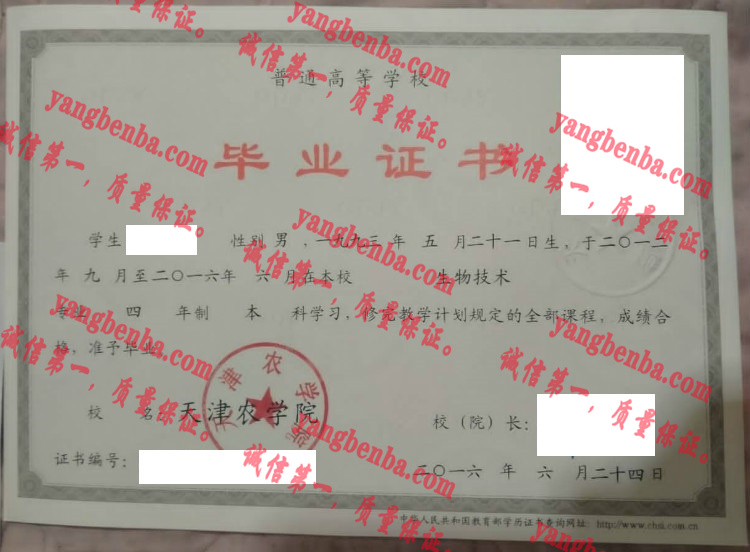 普通高等学校
毕业证书
学生 性别 男 ,一九九三 年 五 月二十一日生,于二〇一二
年 九 月至二〇一六年 六 月在本校 生物技术
专业 四 年制 本 科学习,修完教学计划规定的全部课程,成绩合
格,准予毕业。
天津农学院
校 名: 天津农学院
校(院)长:
证书编号:
二〇一六 年 六 月二十四日
中华人民共和国教育部学历证书查询网址: http://www.chsi.com.cn
yangbenba.com
诚信第一,质量保证。
yangbenba.com
诚信第一,质量保证。
yangbenba.com
诚信第一,质量保证。
yangbenba.com
诚信第一,质量保证。
yangbenba.com
诚信第一,质量保证。
yangbenba.com
诚信第一,质量保证。
yangbenba.com
诚信第一,质量保证。
yangbenba.com
诚信第一,质量保证。